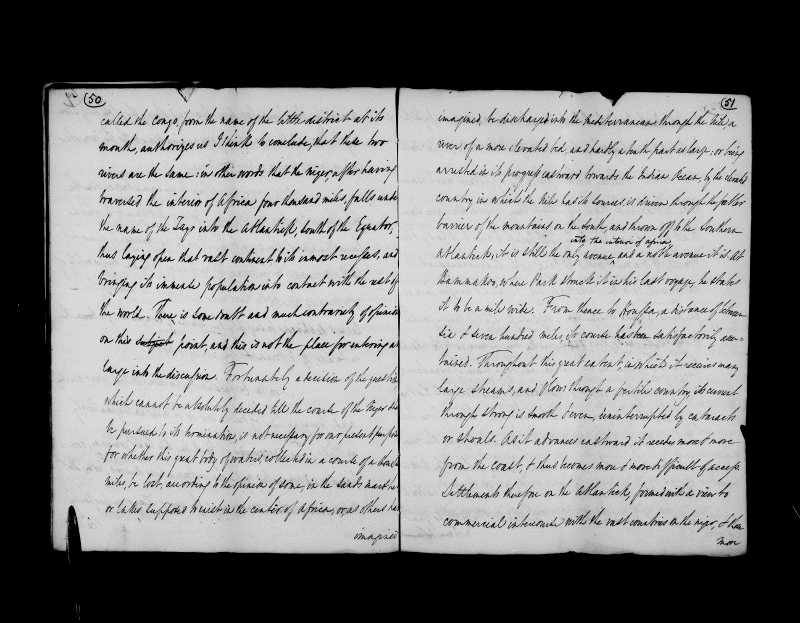 50
called the Congo, from the name of the little district at its
mouth, authorizes us I think to conclude, that these two
rivers are the same: in other words that the niger, after having
traversed the interior of Africa four thousand miles, falls under
the name of the Zayr into the Atlantick, south of the Equator,
thus laying open that vast continent to its inmost recesses, and
bringing its immense population into contact with the rest of
the world. There is some doubt and much contrariety of opinion
on this subject point, and this is not the place for entering at
large into the discussion. Fortunately a decision of the question
which cannot be absolutely decided till the course of the Niger
be pursued to its termination, is not necessary for our present purpose
for whether this great body of waters, collected in a course of a thousand
miles, be lost, according to the opinion of some, in the sands
or lakes supposed to exist in the center of Africa, or, as others
imagined
51
imagined, be discharged into the mediterranean through the Nile, a
river of a more elevated bed, and hardly a tenth part as large; or being
arrested in its progress eastward towards the Indian Ocean, by the elevated
country in which the Nile has its sources, is driven through the feebler
barrier of the mountains on the South, and thrown off to the Southern
into the interior of africa
atlantick, it is still the only avenue, and a noble avenue it is. At
Bammakoo, where Park struck it in his last voyage, he states
it to be a mile wide. From thence to Houssa, a distance of between
six & seven hundred miles, its course has been satisfactorily ascer-
tained. Throughout this great extent, in which it receives many
large streams, and flows through a fertile country, its current
through strong is smooth & even, uninterrupted by cataracts
or shoals. As it advances eastward it recedes more & more
from the coast, & thus becomes more & more difficult of access
Settlements therefore on the Atlantick, formed with a view to
commercial intercourse with the vast countries on the niger, & those
more